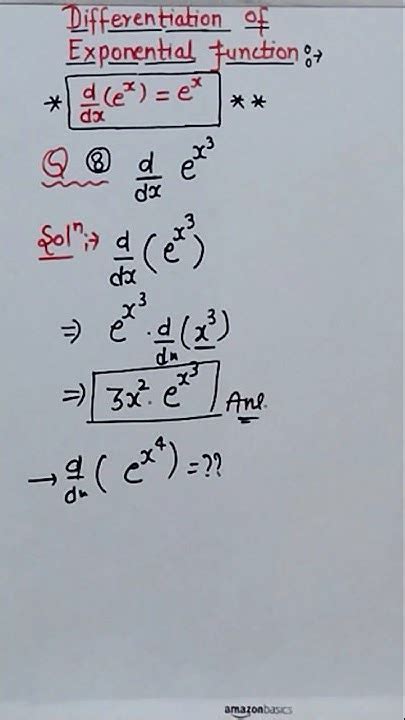 Differentiation of
Exponential Function :→
* d/dx (e^x) = e^x **
Q ⑧ d/dx e^x^3
Solⁿ :→ d/dx (e^x^3)
⇒ e^x^3 · d/dx (x^3)
⇒ 3x^2 · e^x^3 Ans.
→ d/dx (e^x^4) = ??
amazonbasics